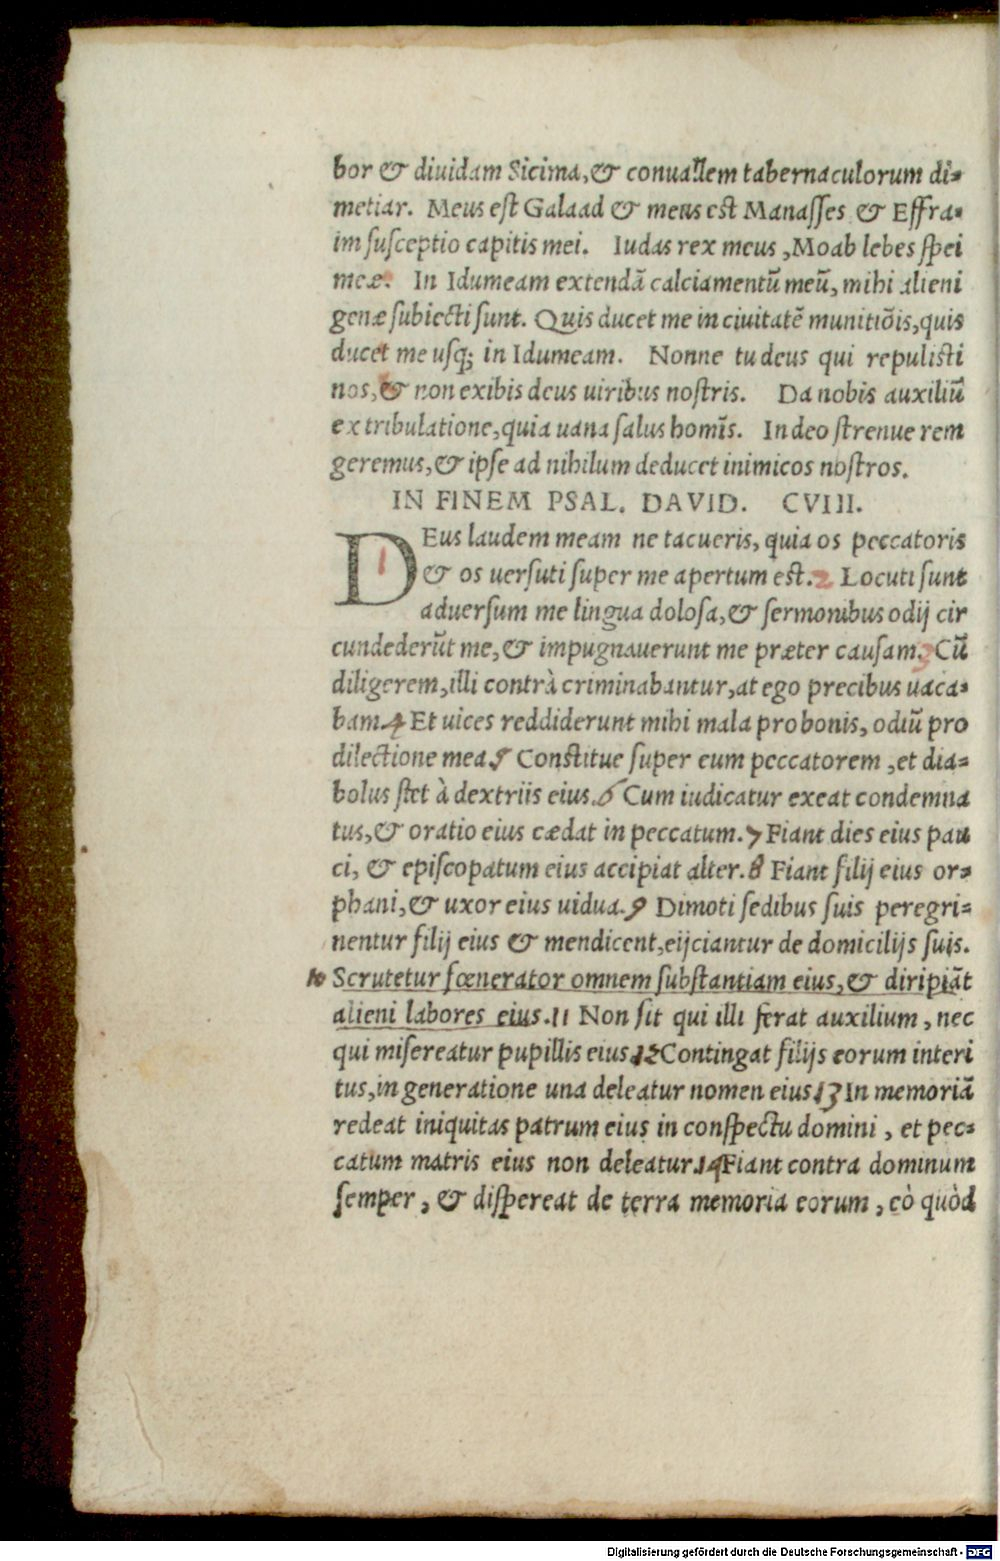 bor & diuidam Sicima,& conuallem tabernaculorum di-
metiar. Meus est Galaad & meus est Manasses & Effra-
im susceptio capitis mei. Iudas rex meus ,Moab lebes spei
meæ. In Idumeam extendā calciamentū meū, mihi alieni
genæ subiecti sunt. Quis ducet me in ciuitatē munitiōis,quis
ducet me usq; in Idumeam. Nonne tu deus qui repulisti
nos,& non exibis deus uiribus nostris. Da nobis auxiliū
ex tribulatione,quia uana salus homīs. In deo strenue rem
geremus,& ipse ad nihilum deducet inimicos nostros.
IN FINEM PSAL. DAVID. CVIII.
DEus laudem meam ne tacueris, quia os peccatoris
1 & os uersuti super me apertum est. 2 Locuti sunt
aduersum me lingua dolosa,& sermonibus odij cir
cundederūt me,& impugnauerunt me præter causam. 3 Cū
diligerem,illi contrà criminabantur,at ego precibus uaca-
bam. 4 Et uices reddiderunt mihi mala pro bonis, odiū pro
dilectione mea. 5 Constitue super eum peccatorem ,et dia-
bolus stet à dextriis eius. 6 Cum iudicatur exeat condemna
tus,& oratio eius cædat in peccatum. 7 Fiant dies eius pau
ci, & episcopatum eius accipiat alter. 8 Fiant filij eius or-
phani,& uxor eius uidua. 9 Dimoti sedibus suis peregri-
nentur filij eius & mendicent,eijciantur de domicilijs suis.
10 Scrutetur fœnerator omnem substantiam eius,& diripiāt
alieni labores eius. 11 Non sit qui illi ferat auxilium , nec
qui misereatur pupillis eius. 12 Contingat filijs eorum interi
tus,in generatione una deleatur nomen eius. 13 In memoriā
redeat iniquitas patrum eius in conspectu domini , et pec-
catum matris eius non deleatur. 14 Fiant contra dominum
semper , & dispereat de terra memoria eorum , eò quòd
Digitalisierung gefördert durch die Deutsche Forschungsgemeinschaft - DFG